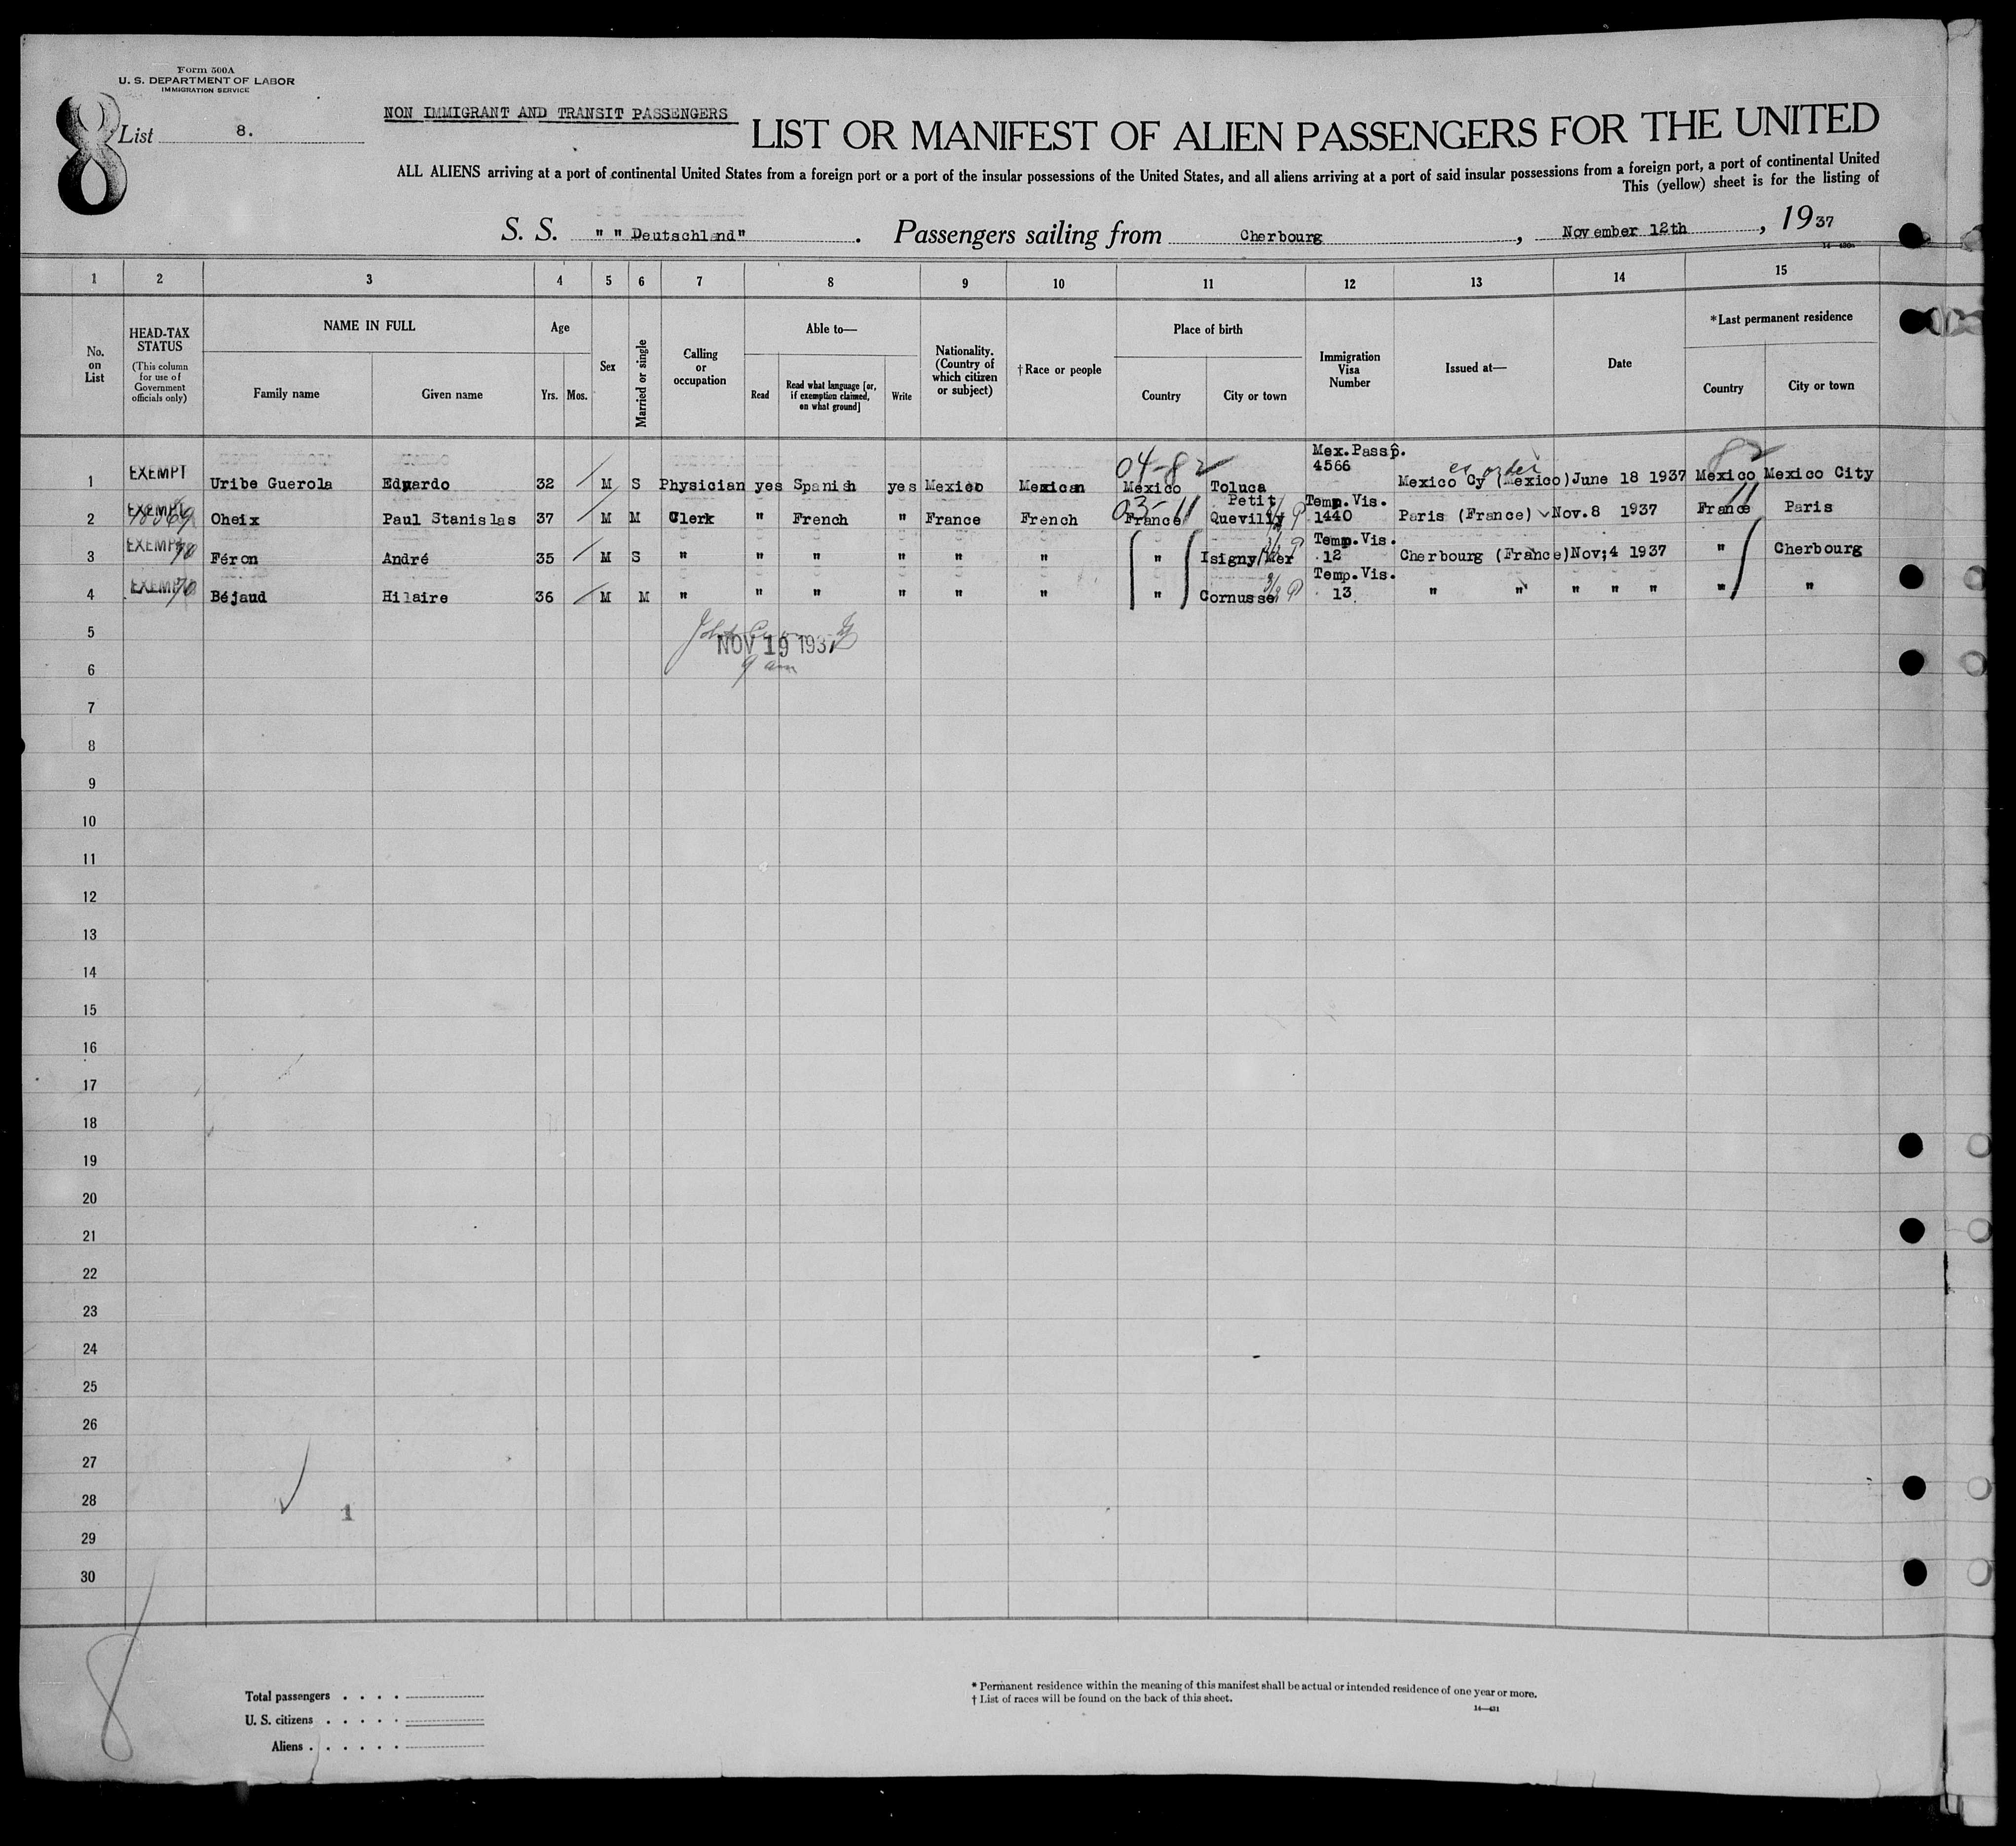 Form 500A
U. S. DEPARTMENT OF LABOR
IMMIGRATION SERVICE
8
List 8.
NON IMMIGRANT AND TRANSIT PASSENGERS
LIST OR MANIFEST OF ALIEN PASSENGERS FOR THE UNITED
ALL ALIENS arriving at a port of continental United States from a foreign port or a port of the insular possessions of the United States, and all aliens arriving at a port of said insular possessions from a foreign port, a port of continental United
This (yellow) sheet is for the listing of
S. S. " " Deutschland". Passengers sailing from Cherbourg, November 12th, 1937
1 2 3 4 5 6 7 8 9 10 11 12 13 14 15
No. on List
HEAD-TAX STATUS (This column for use of Government officials only)
NAME IN FULL
Family name Given name
Age
Yrs. Mos.
Sex
Married or single
Calling or occupation
Able to—
Read Read what language [or, if exemption claimed, on what ground] Write
Nationality. (Country of which citizen or subject)
† Race or people
Place of birth
Country City or town
Immigration Visa Number
Issued at—
Date
* Last permanent residence
Country City or town
04-82 Mex.Passp. 82
1 EXEMPT Uribe Guerola Eduardo 32 M S Physician yes Spanish yes Mexico Mexican Mexico Toluca 4566 Mexico Cy (Mexico) June 18 1937 Mexico Mexico City
03-11 Petit Temp.Vis. 11
2 EXEMPT Oheix Paul Stanislas 37 M M Clerk " French " France French France Quevilly 1440 Paris (France) Nov.8 1937 France Paris
Temp.Vis.
3 EXEMPT 70 Féron André 35 M S " " " " " " " Isigny/Mer 12 Cherbourg (France) Nov;4 1937 " Cherbourg
Temp.Vis.
4 EXEMPT 70 Béjaud Hilaire 36 M M " " " " " " " Cornusse 13 " " " " " " "
5
NOV 19 1937
9 am
6
7
8
9
10
11
12
13
14
15
16
17
18
19
20
21
22
23
24
25
26
27
28
1
29
30
8
Total passengers . . . .
U. S. citizens . . . . .
Aliens . . . . . .
* Permanent residence within the meaning of this manifest shall be actual or intended residence of one year or more.
† List of races will be found on the back of this sheet.
14—431